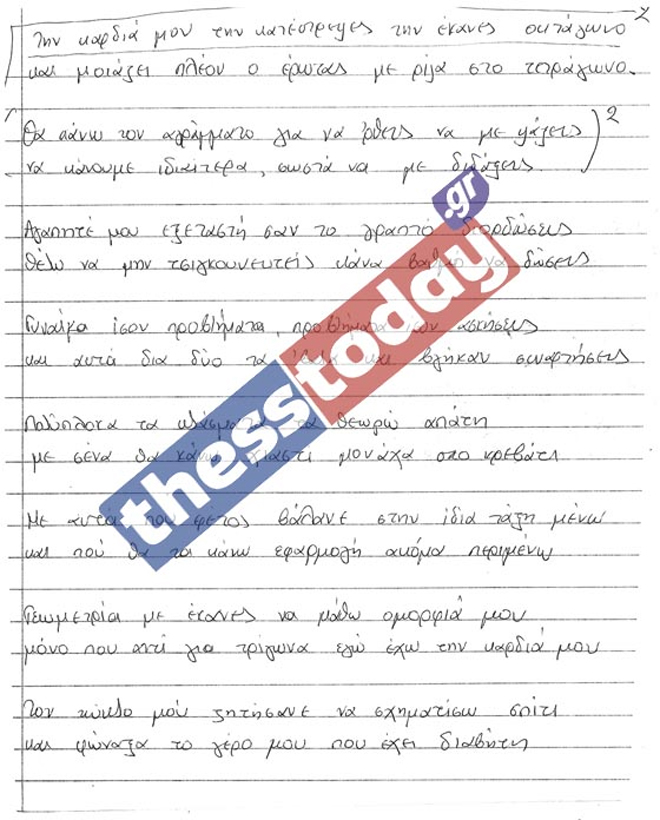 Την καρδιά μου την κατέστρεψες την έκανες οκτάγωνο 2
και μοιάζει πλέον ο έρωτας με ρίζα στο τετράγωνο.
Θα κάνω τον αγράμματο για να 'ρθεις να με ψάξεις 2
να κάνουμε ιδιαίτερα, σωστά να με διδάξεις
Αγαπητέ μου εξεταστή σαν το γραπτό διορθώσεις
θέλω να μην τσιγκουνευτείς κάνα βαθμό να δώσεις
Γυναίκα ίσον προβλήματα, προβλήματα ίσον ασκήσεις
και αυτά δια δύο τα έβαλα και βγήκαν συναρτήσεις
Πολύπλοκα τα κλάσματα τα θεωρώ απάτη
με σένα θα κάνω χιαστί μονάχα στο κρεβάτι
Με αυτά που φέτος βάλανε στην ίδια τάξη μένω
και πού θα τα κάνω εφαρμογή ακόμα περιμένω
Γεωμετρία με έκανες να μάθω ομορφιά μου
μόνο που αντί για τρίγωνα εγώ έχω την καρδιά μου
Τον κύκλο μού ζητήσανε να σχηματίσω σπίτι
και φώναξα το γέρο μου που έχει διαβήτη
thesstoday.gr